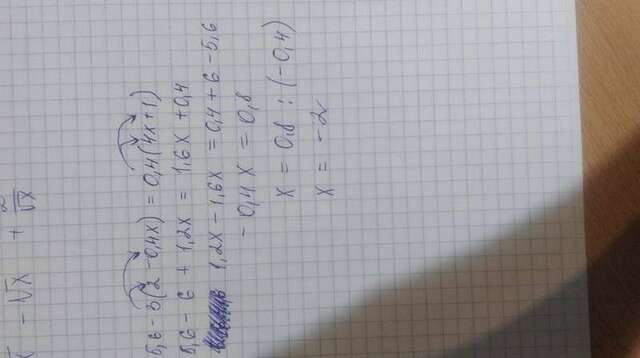 - √x + 2/√x
5,6 - 3(2 - 0,4x) = 0,4(4x + 1)
5,6 - 6 + 1,2x = 1,6x + 0,4
1,2x - 1,6x = 0,4 + 6 - 5,6
- 0,4x = 0,8
x = 0,8 : (-0,4)
x = -2